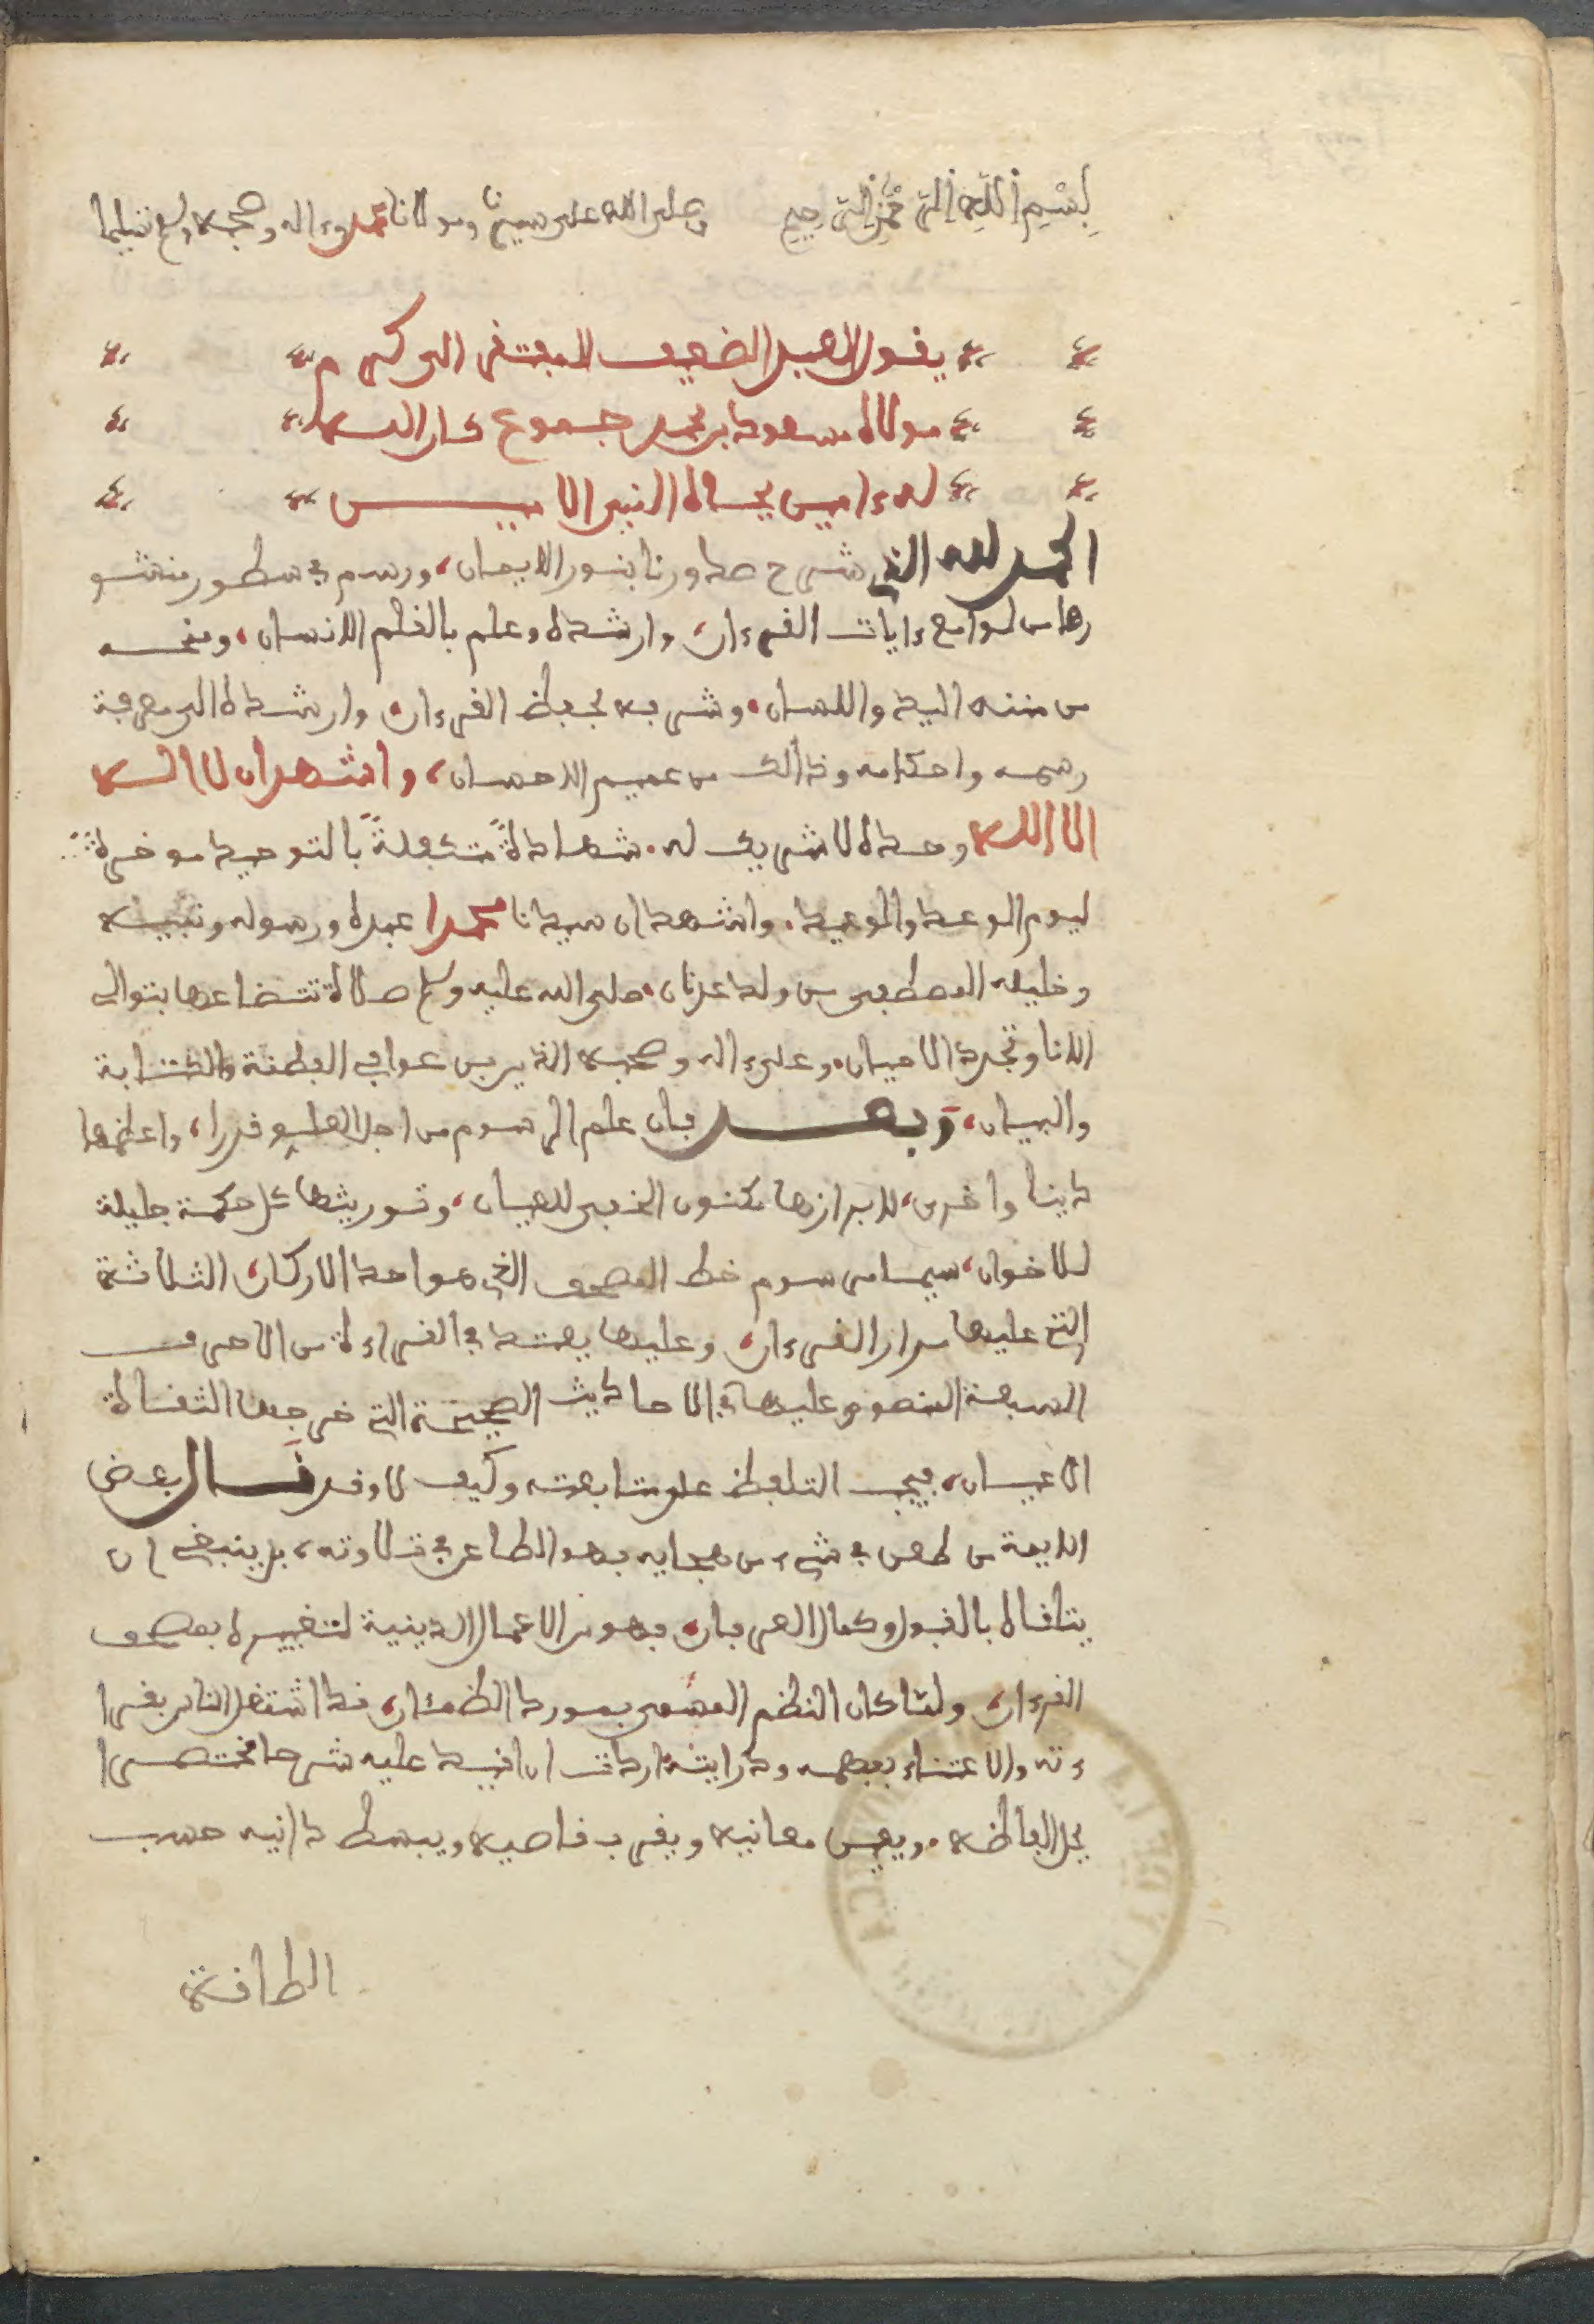 بسم الله الرحمن الرحيم وصلى الله على سيدنا ومولانا محمد وءاله وصحبه وسلم تسليما
يقول العبد الضعيف المفتقر الى كرم
مولاه مسعود بن محمد جموع كان الله
له ءامين بجاه النبي الاميـن
الحمد لله الذي شرح صدورنا بنور الايمان، ورسم في سطور منشو
رها من لوامع ءايات القرءان، وارشده وعلم بالقلم الانسان، ومنحه
من مننه اليد واللسان، وشرفه بحفظ القرءان وارشده الى معرفة
رسمه واحكامه وذالك من عميم الاحسان، واشهد ان لا اله
الا الله وحده لا شريك له، شهادة متكفلة بالتوحيد موخرة
ليوم الوعد والوعيد، واشهد ان سيدنا محمدا عبده ورسوله ونبيه
وخليله المصطفى من ولد عدنان، صلى الله عليه وسلم صلاة تتضاعف بتوالى
الانا وتجدد الاحيان، وعلى ءاله وصحبه الذين عوا في الفطنة والكتابة
والبيان، وبعد فان علم الرسوم من اجل العلوم قدرا، واعظمها
دينا واخرى، لابرازها مكنون الخفى للعيان، وتوريثها كل حكمة جليلة
للاخوان، سيما مرسوم خط المصحف الذي هو احد الاركان الثلاثة
التي عليها مدار القرءان، وعليها يعتمد في القراءة من الاحرف
السبعة المنصوص عليها في الاحاديث الصحيحة التي خرجها الثقاة
الاعيان، فيجب التلفظ على متابعته وكيف لا وقد قال بعض
الايمة من طعن في شيء من هجايه فهو الطاعن في تلاوته، بل ينبغي ان
يتلقاه بالقبول وكمال العرفان، فهو من الاعمال الدينية لتقييده بمصحف
القرءان، ولما كان النظم المسمى بمورد الظمئان، قد اشتغل الناس بقرا
ءته والاعتناء بفهمه ودرايته، اردت ان اقيد عليه شرحا مختصرا
يحل الفاظه، ويعين معانيه ويقرب قاصيه ويبسط دانيه حسب
الطاقة